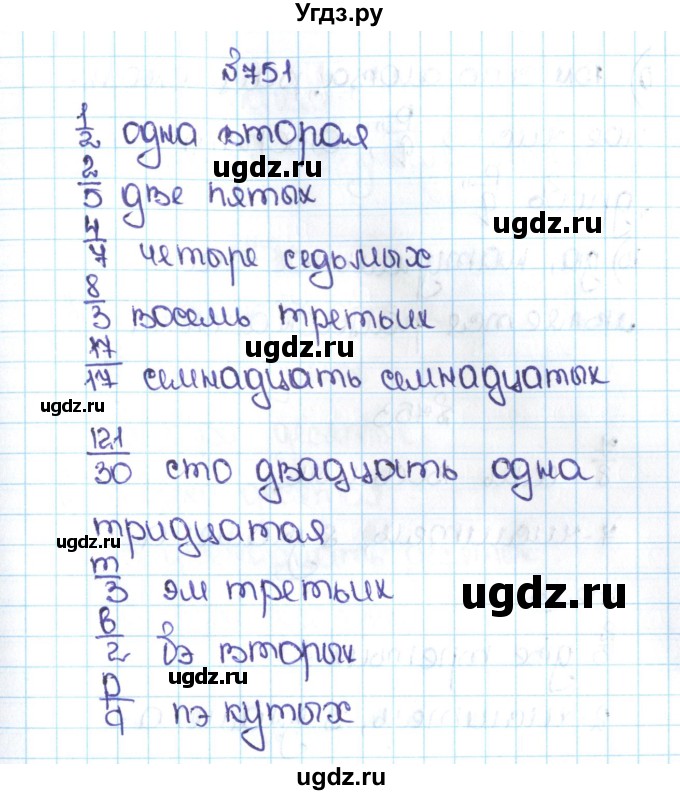 Угдз.ру
№751
1/2 одна вторая
ugdz.ru
2/5 две пятых
ugdz.ru
4/7 четыре седьмых
8/3 восемь третьих
ugdz.ru
17/17 семнадцать семнадцатых
ugdz.ru
121/30 сто двадцать одна
тридцатая
ugdz.ru
m/3 эм третьих
ugdz.ru
в/2 вэ вторых
ugdz.ru
p/q пэ кутых
ugdz.ru